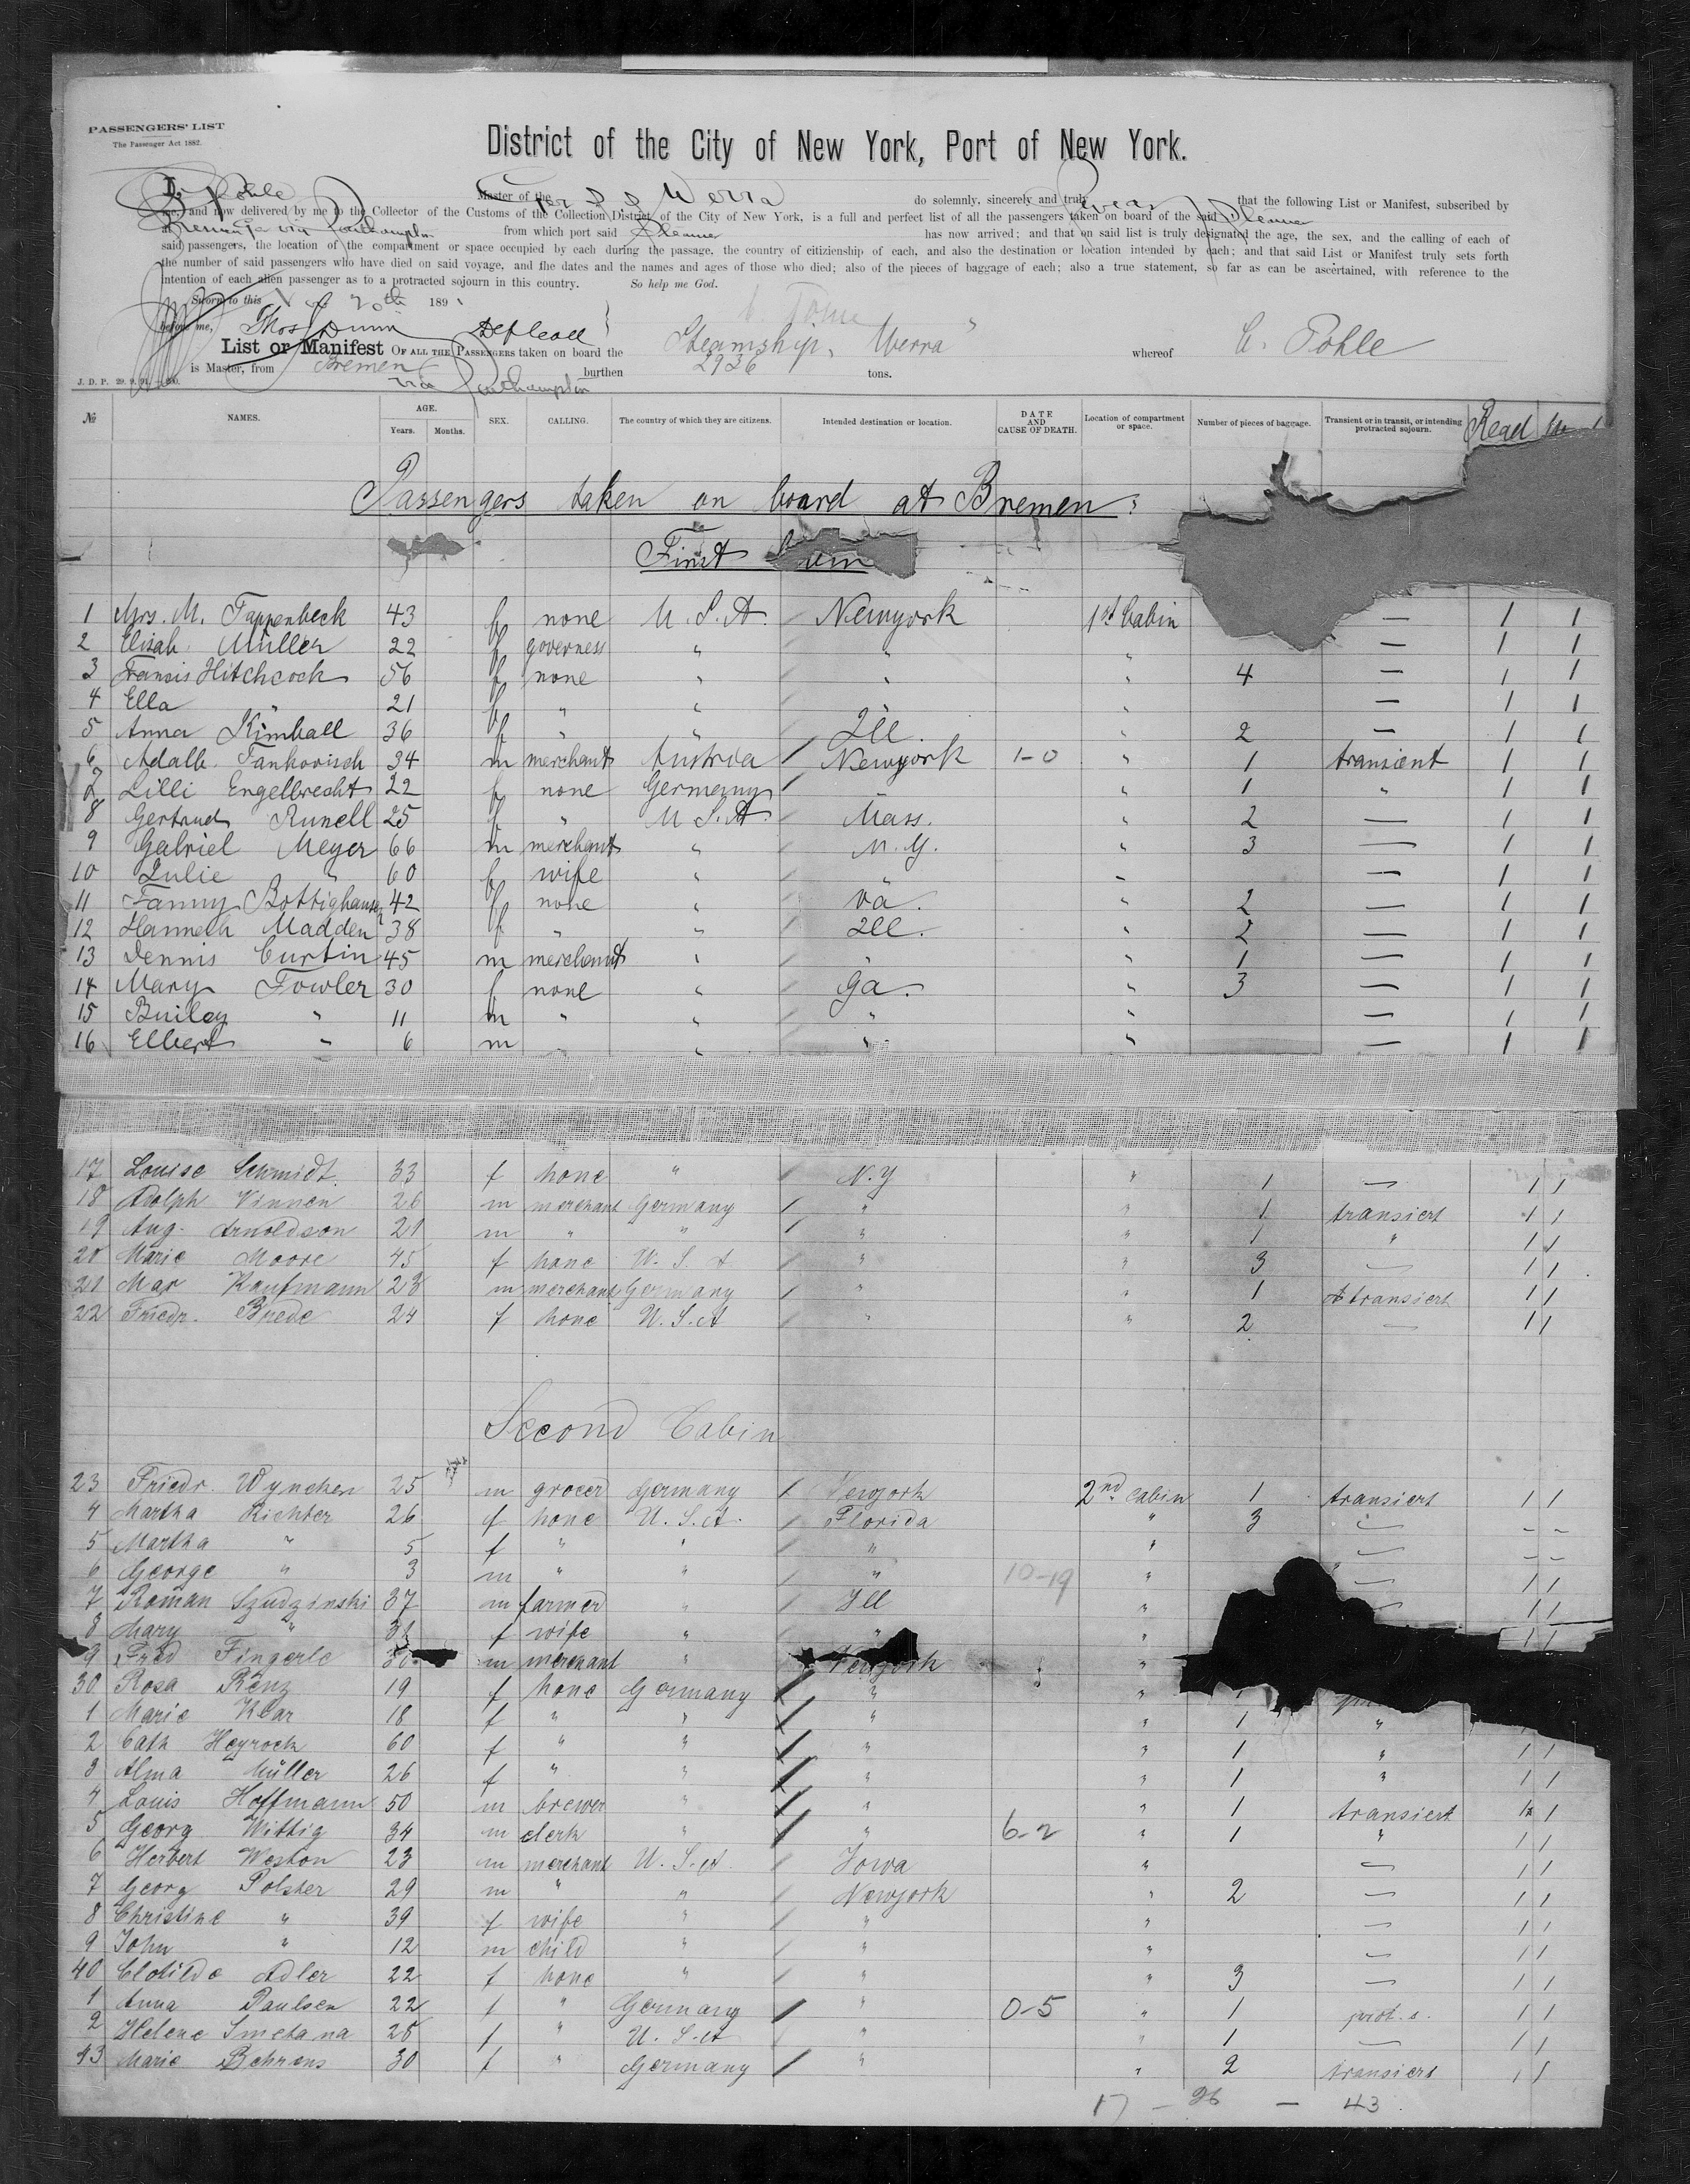 PASSENGERS' LIST
The Passenger Act 1882.
District of the City of New York, Port of New York.
I, Pohle Master of the Ger S S Werra do solemnly, sincerely and truly swear that the following List or Manifest, subscribed by
me, and now delivered by me to the Collector of the Customs of the Collection District of the City of New York, is a full and perfect list of all the passengers taken on board of the said Steamer
at Bremen via Southampton from which port said Steamer has now arrived; and that on said list is truly designated the age, the sex, and the calling of each of
said passengers, the location of the compartment or space occupied by each during the passage, the country of citizienship of each, and also the destination or location intended by each; and that said List or Manifest truly sets forth
the number of said passengers who have died on said voyage, and the dates and the names and ages of those who died; also of the pieces of baggage of each; also a true statement, so far as can be ascertained, with reference to the
intention of each alien passenger as to a protracted sojourn in this country. So help me God.
Sworn to this 20th 189
before me, Thos Dunn
List or Manifest OF ALL THE PASSENGERS taken on board the Steamship, Werra whereof C. Pohle
is Master, from Bremen burthen 2936 tons.
J. D. P. 29. 9. 91.
via Southampton
№ NAMES. AGE. Years. Months. SEX. CALLING. The country of which they are citizens. Intended destination or location. DATE AND CAUSE OF DEATH. Location of compartment or space. Number of pieces of baggage. Transient or in transit, or intending protracted sojourn. Read
Passengers taken on board at Bremen:
First
1 Mrs. M. Tappenbeck 43 f none U. S. A. Newyork 1st Cabin — 1 1
2 Elisab. Müller 22 f governess " " " — 1 1
3 Francis Hitchcock 56 f none " " " 4 — 1 1
4 Ella " 21 f " " " " — 1 1
5 Anna Kimball 36 f " " Ill. " 2 — 1 1
6 Adalb. Tankovisch 34 m merchant Austria / Newyork 1-0 " 1 transient 1 1
7 Lilli Engelbrecht 22 f none Germany / " " 1 " 1 1
8 Gertrud Runell 25 f " U S. A. Mass. " 2 — 1 1
9 Gabriel Meyer 66 m merchant " N. Y. " 3 — 1 1
10 Julie " 60 f wife " " " — 1 1
11 Fanny Bottighauser 42 f none " Va. " 2 — 1 1
12 Hanneh Madden 38 f " " Ill. " 2 — 1 1
13 Dennis Curtin 45 m merchant " " 1 — 1 1
14 Mary Fowler 30 f none " Ga. " 3 — 1 1
15 " 11 m " " " " — 1 1
16 Elbert " 6 m " " " " — 1 1
17 Louise Schmidt. 33 f none " / N. Y " 1 — 1 1
18 Adolph Vinnen 26 m merchant Germany / " " 1 transient 1 1
19 Aug. Arnoldson 21 m " " / " " 1 " 1 1
20 Marie Moore 45 f none U. S. A / " " 3 — 1 1
21 Max Kaufmann 23 m merchant Germany / " " 1 transient 1 1
22 Friedr. Brede 24 f none U. S. A / " " 2 — 1 1
Second Cabin
23 Friedr. Wynchen 25 m grocer Germany / Newyork 2nd cabin 1 transient 1 1
4 Martha Richter 26 f none U. S. A. / Florida " 3 — 1 1
5 Martha " 5 f " " / " " — - -
6 George " 3 m " " / " 10-19 " — 1 1
7 Roman Szudzinski 37 m farmer " / Ill " — 1 1
8 Mary " f wife " / " " 1 1
9 Fred Fingerle 30 m merchant " Newyork "
30 Rosa Renz 19 f none Germany / " "
1 Marie Klar 18 f " " / " " 1 "
2 Cath Heyrock 60 f " " / " " 1 " 1 1
3 Alma Müller 26 f " " / " " 1 " 1 1
4 Louis Hoffmann 50 m brewer " / " " 1 transient 1 1
5 Georg Wittig 34 m clerk " / " 6-2 " 1 " 1 1
6 Herbert Weston 23 m merchant U. S. A. / Iowa " — 1 1
7 Georg Polster 29 m " " / Newyork " 2 — 1 1
8 Christine " 39 f wife " / " " — 1 1
9 John " 12 m child " / " " — 1 1
40 Clotilde Adler 22 f none " / " " 3 — 1 1
1 Anna Paulsen 22 f " Germany / " 0-5 " 1 prot. s. 1 1
2 Helene Smetana 28 f " U. S. A / " " 1 — 1 1
43 Marie Behrens 30 f " Germany / " " 2 transient 1 1
17 - 26 - 43